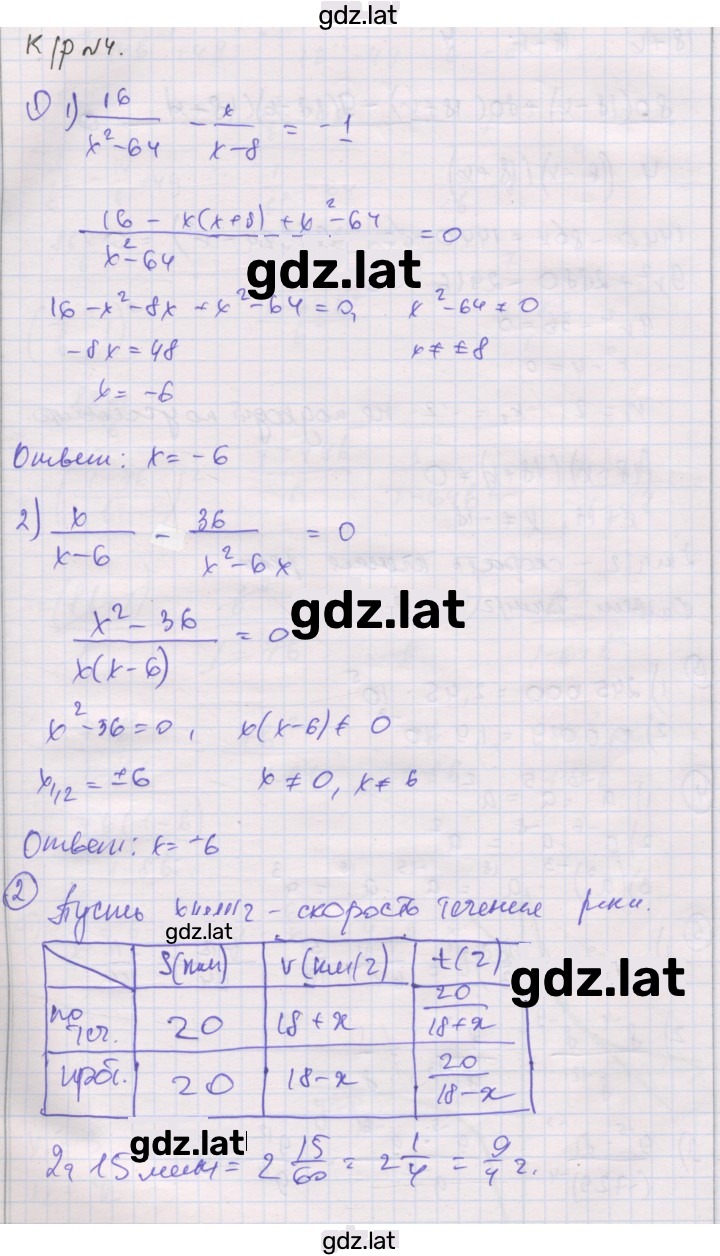 gdz.lat
К/р №4.
① 1) 16/(x²-64) - x/(x-8) = -1
(16 - x(x+8) + x²-64)/(x²-64) = 0
gdz.lat
16-x²-8x+x²-64=0, x²-64≠0
-8x=48 x≠±8
x= -6
Ответ: x= -6
2) x/(x-6) - 36/(x²-6x) = 0
gdz.lat
(x²-36)/(x(x-6)) = 0
x²-36=0, x(x-6)≠0
x₁,₂=±6 x≠0, x≠6
Ответ: x=-6
② Пусть x км/ч - скорость течения реки.
gdz.lat
S(км) V(км/ч) t(ч)
gdz.lat
по теч. 20 18+x 20/(18+x)
прот. 20 18-x 20/(18-x)
gdz.lat
2ч 15мин = 2 15/60 = 2 1/4 = 9/4 ч.
gdz.lat